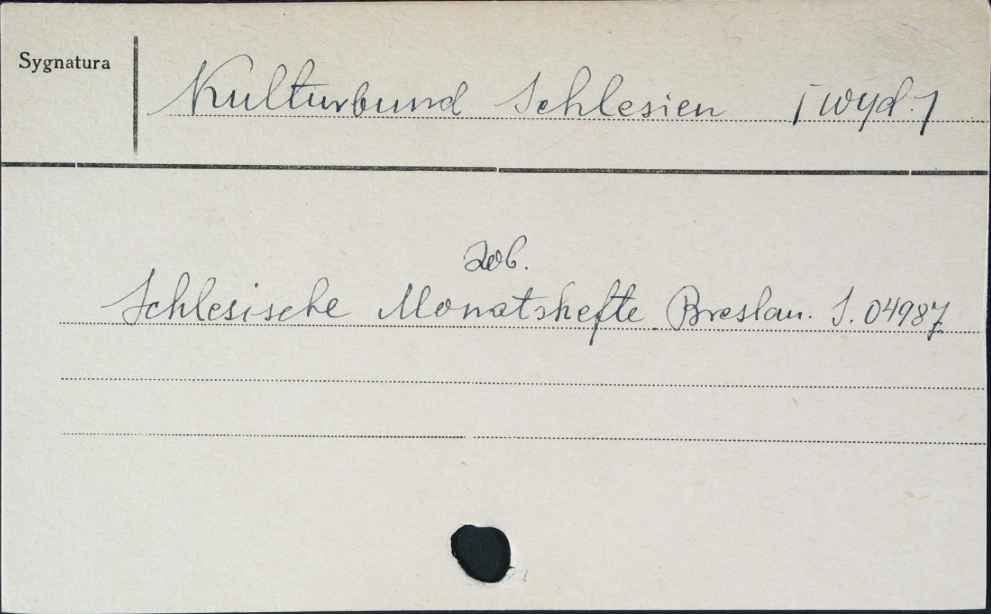 Sygnatura
Kulturbund Schlesien [wyd.]
zob.
Schlesische Monatshefte Breslau. S. 04987